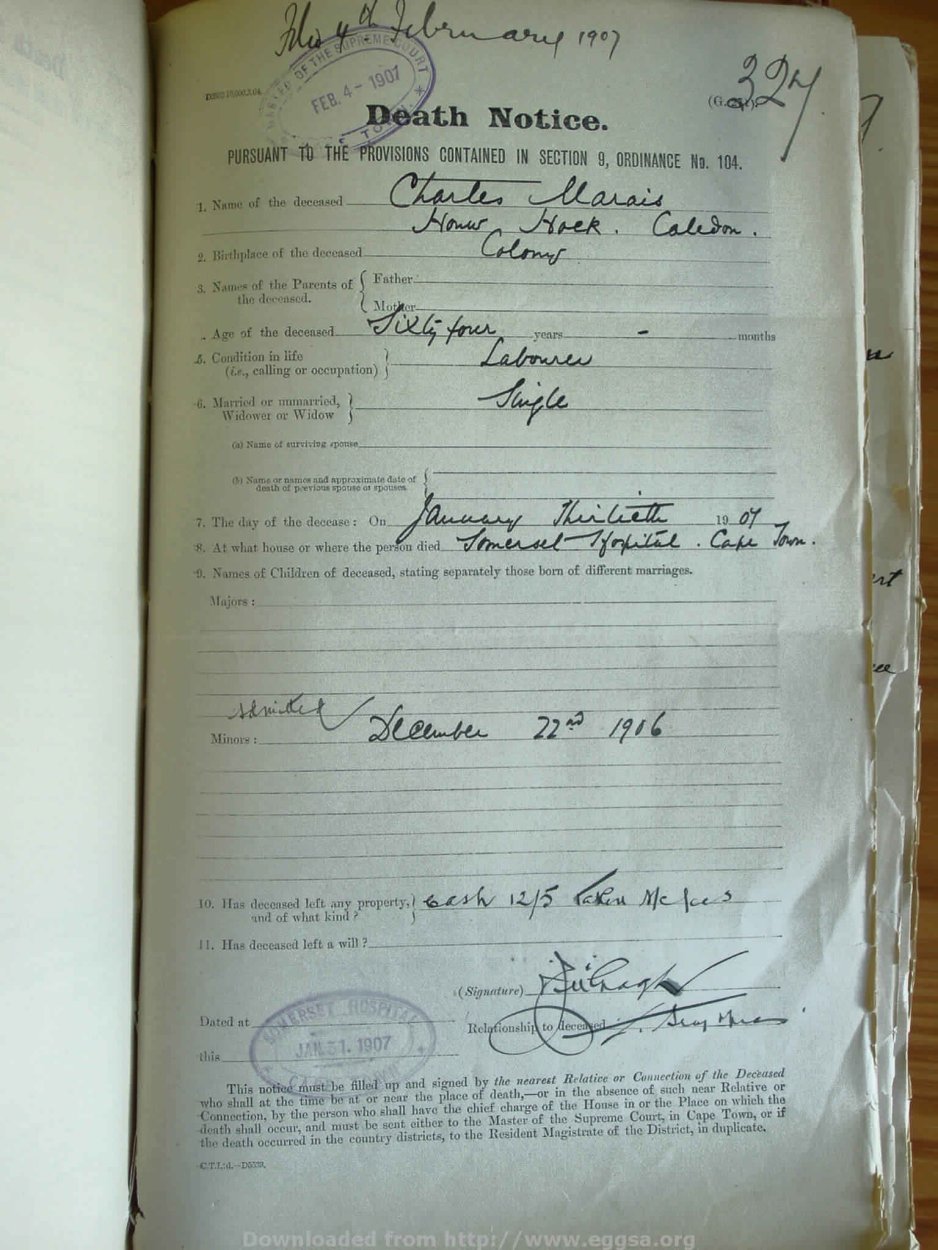 Filed 4th February 1907
MASTER OF THE SUPREME COURT
FEB. 4 - 1907
TOWN.
327
Death Notice.
PURSUANT TO THE PROVISIONS CONTAINED IN SECTION 9, ORDINANCE No. 104.
1. Name of the deceased Charles Marais
Houw Hoek. Caledon.
2. Birthplace of the deceased Colony
3. Names of the Parents of the deceased. { Father
Mother
Age of the deceased Sixty four years - months
5. Condition in life
(i.e., calling or occupation) } Labourer
6. Married or unmarried,
Widower or Widow } Single
(a) Name of surviving spouse
(b) Name or names and approximate date of
death of previous spouse or spouses {
7. The day of the decease: On January Thirtieth 1907
8. At what house or where the person died Somerset Hospital. Cape Town.
9. Names of Children of deceased, stating separately those born of different marriages.
Majors :
Admitted
Minors : December 22nd 1906
10. Has deceased left any property,
and of what kind ? } Cash 12/5 taken
11. Has deceased left a will ?
(Signature)
Dated at
SOMERSET HOSPITAL
JAN. 31. 1907
Relationship to deceased
this
This notice must be filled up and signed by the nearest Relative or Connection of the Deceased
who shall at the time be at or near the place of death,—or in the absence of such near Relative or
Connection, by the person who shall have the chief charge of the House in or the Place on which the
death shall occur, and must be sent either to the Master of the Supreme Court, in Cape Town, or if
the death occurred in the country districts, to the Resident Magistrate of the District, in duplicate.
Downloaded from http://www.eggsa.org